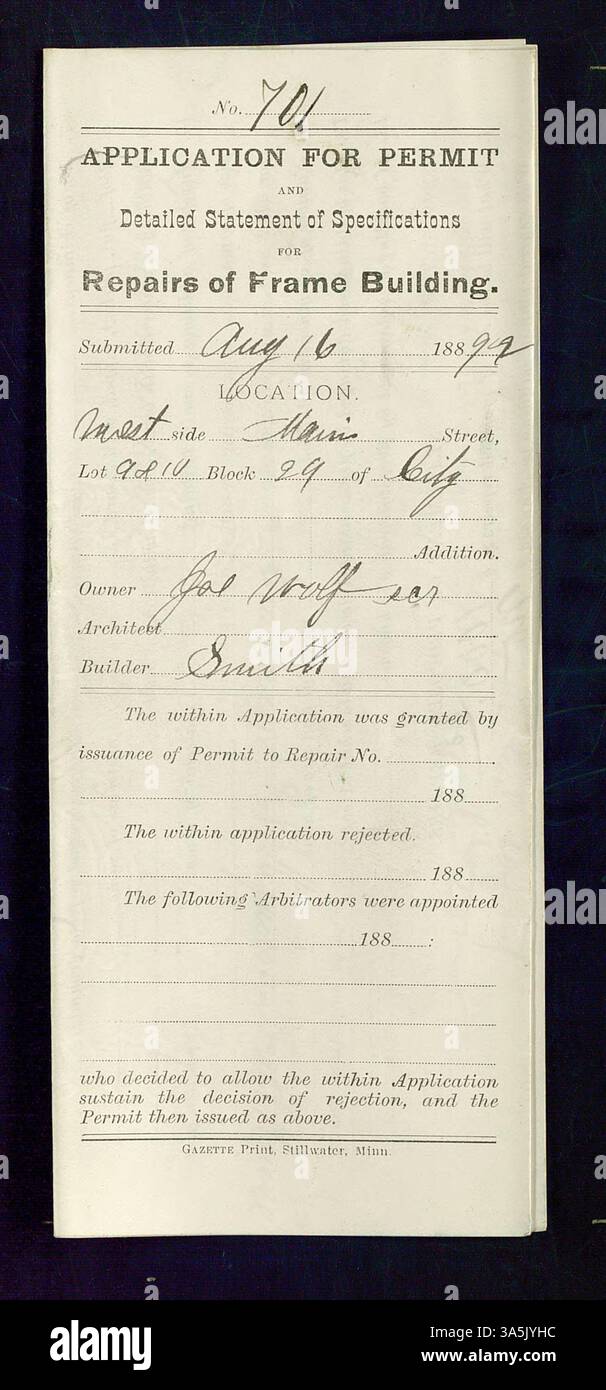 No. 701
APPLICATION FOR PERMIT
AND
Detailed Statement of Specifications
FOR
Repairs of Frame Building.
Submitted Aug 16 18892
LOCATION.
West side Main Street,
Lot 9 & 10 Block 29 of City
Addition.
Owner Joe Wolf
Architect
Builder Smith
The within Application was granted by
issuance of Permit to Repair No.
188
The within application rejected.
188
The following Arbitrators were appointed
188 :
who decided to allow the within Application
sustain the decision of rejection, and the
Permit then issued as above.
GAZETTE Print, Stillwater, Minn.
alamy
alamy
Image ID: 3A5JYHC
www.alamy.com